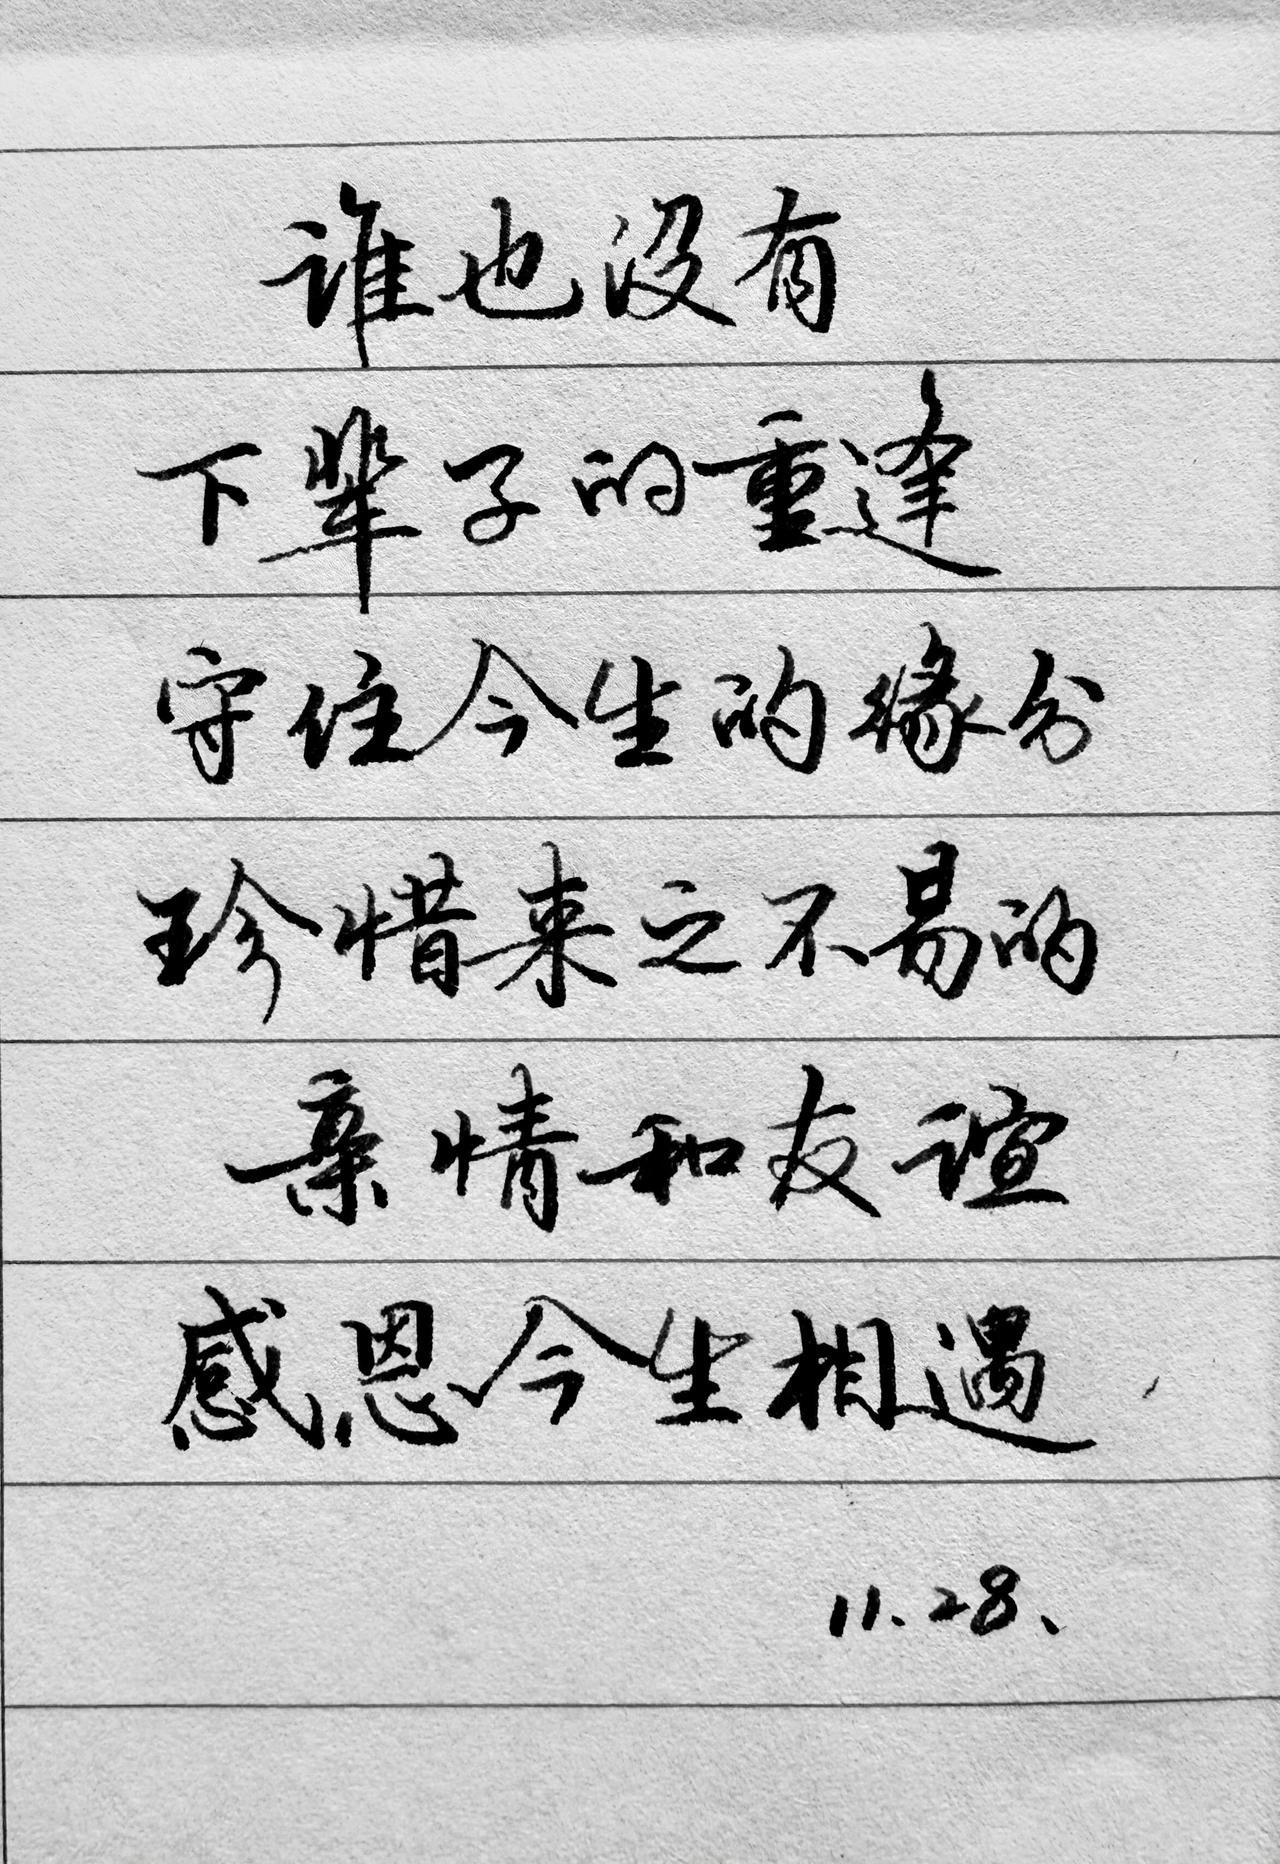 谁也没有
下辈子的重逢
守住今生的缘分
珍惜来之不易的
亲情和友谊
感恩今生相遇
11.28、